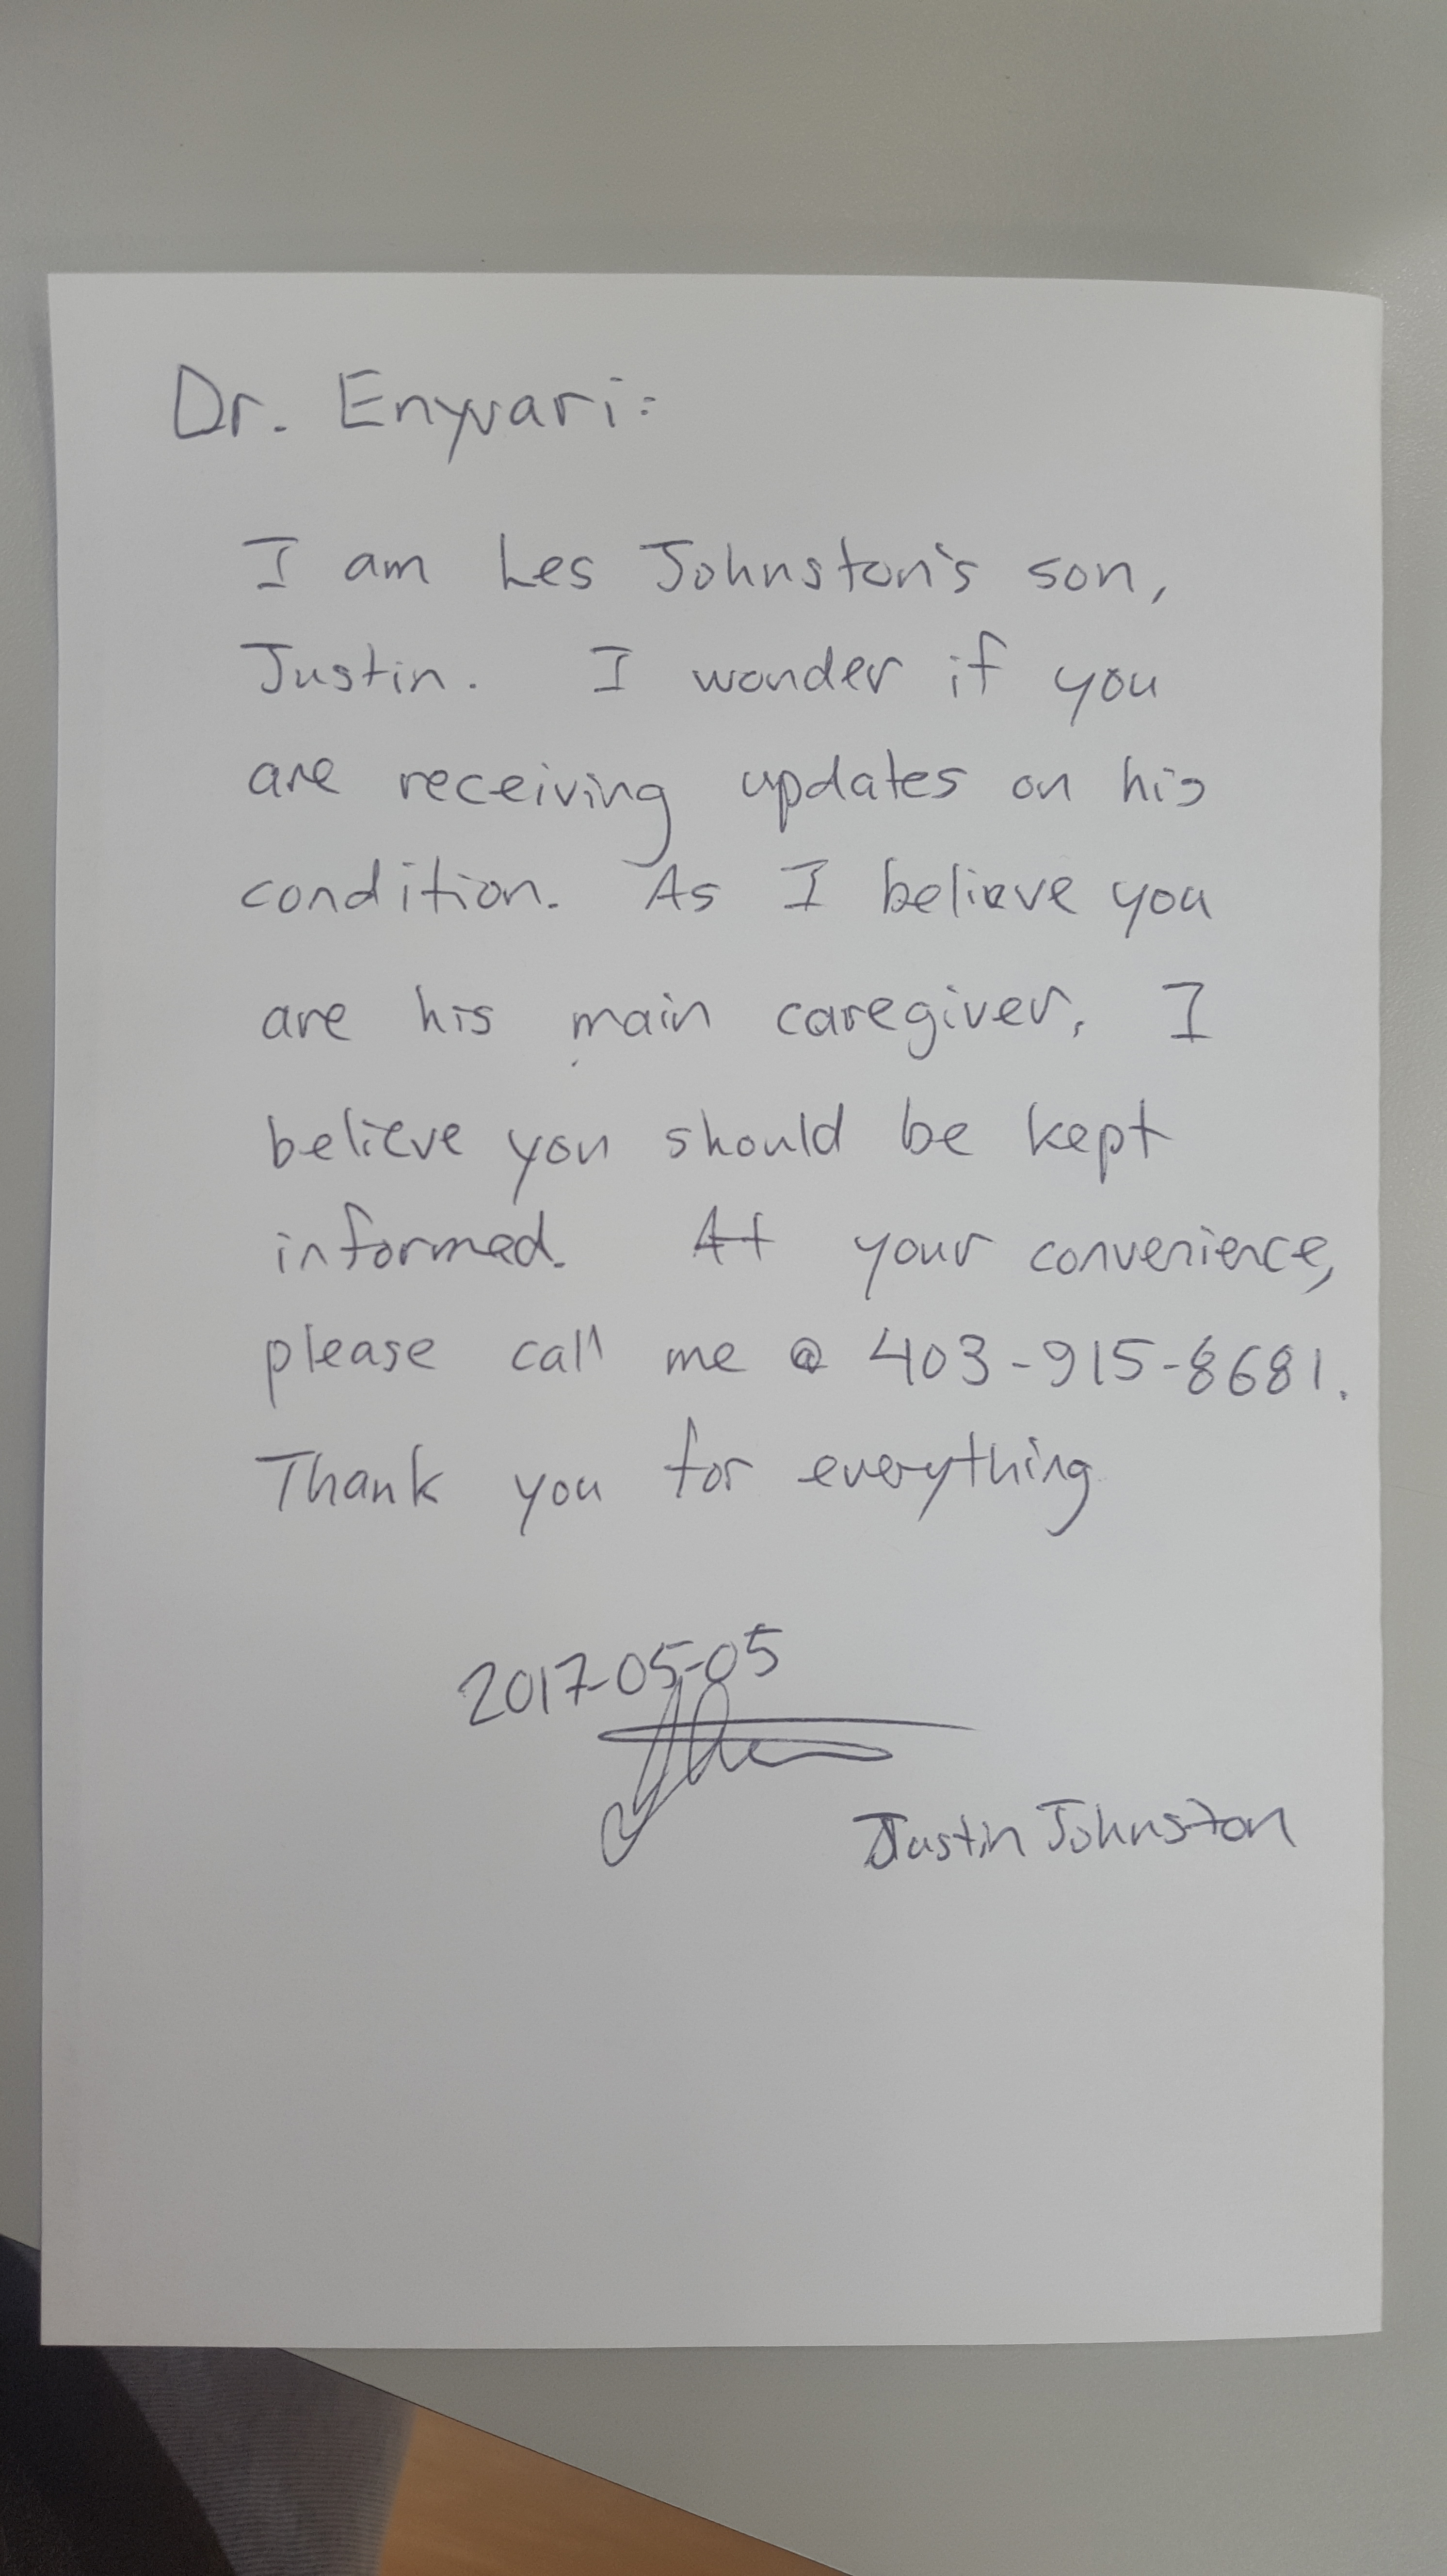 Dr. Enyvari:
I am Les Johnston's son,
Justin. I wonder if you
are receiving updates on his
condition. As I believe you
are his main caregiver, I
believe you should be kept
informed. At your convenience,
please call me @ 403-915-8681.
Thank you for everything
2017-05-05
Justin Johnston